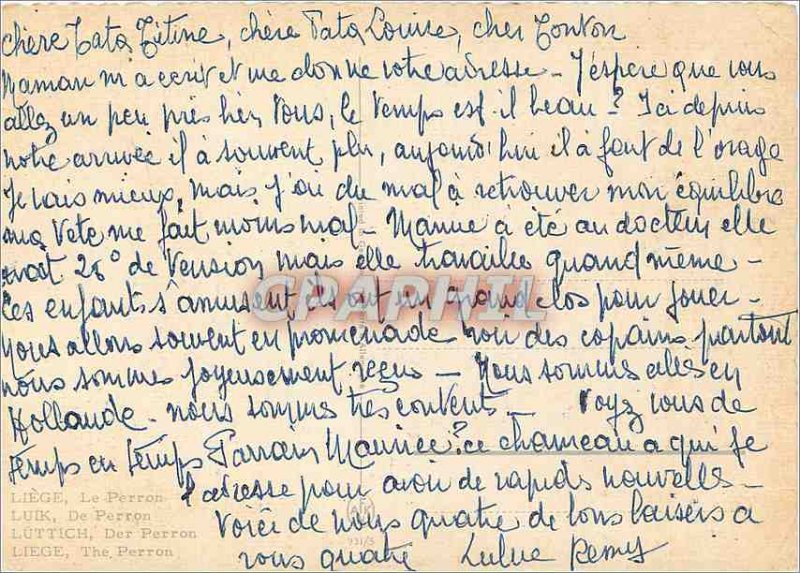 chère Tata Titine, chère Tata Louise, cher Tonton
Maman m'a ecrit et me donne votre adresse - J'éspère que vous
allez un peu près bien Vous, le temps est il beau? Ici depuis
notre arrivée il à souvent plu, aujourd'hui il à fait de l'orage
Je vais mieux, mais j'ai du mal à retrouver mon équilibre
ma tete me fait moins mal - Manue à été au docteur elle
avait 28° de Tension mais elle travaille quand même -
Les enfants s'amusent ils ont un grand clos pour jouer -
Nous allons souvent en promenade voir des copains partout
nous sommes joyeusement reçus - Nous sommes alles en
Hollande - nous sommes très contents - Voyez vous de
temps en temps Parrain Maurice? ce chameau a qui je
l'adresse pour avoir de rapids nouvelles -
LIÈGE, Le Perron
LUIK, De Perron
LÜTTICH, Der Perron
LIEGE, The Perron
Voici de nous quatre de bons baisers a
vous quatre Lulue Remy
931/5
CPAPHIL